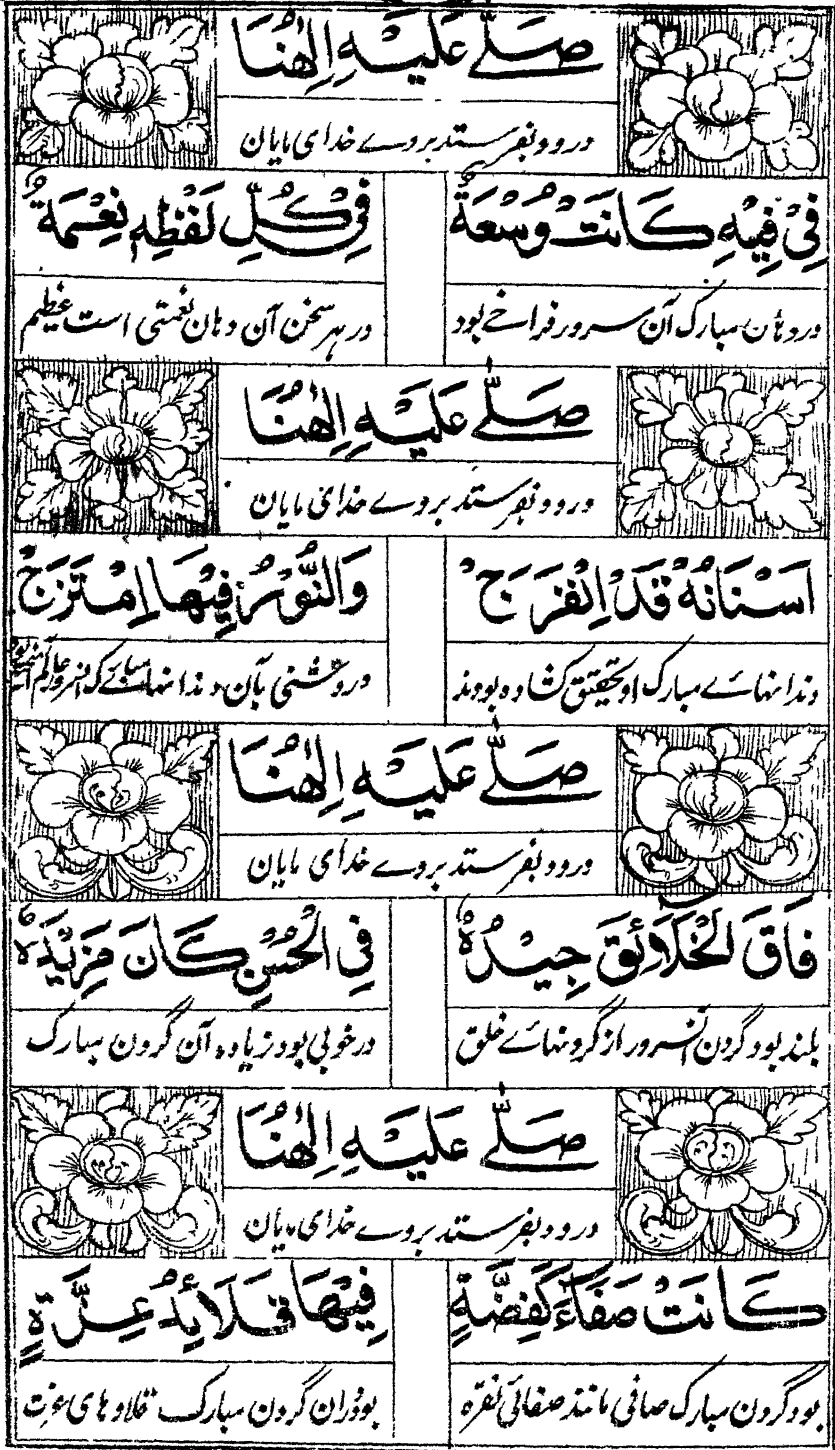 صَلَّے عَلَيْهِ اِلٰهُنَا
درود بفرستد بروے خدای مایان
فِیْ فِيْهِ كَانَتْ وُسْعَةٌ
در دهان مبارک آن سرور فراخے بود
فِیْ كُلِّ لَفْظِهٖ نِعْمَةٌ
در هر سخن آن دهان نعمتی است عظیم
صَلَّے عَلَيْهِ اِلٰهُنَا
درود بفرستد بروے خدای مایان
اَسْنَانُهٗ قَدْ اِنْفَرَجْ
دندانهائے مبارک او بتحقیق کشاده بودند
وَالنُّوْرُ فِيْهَا اِمْتَزَجْ
در وشنی بآن دندانهائے مبارک
صَلَّے عَلَيْهِ اِلٰهُنَا
درود بفرستد بروے خدای مایان
فَاقَ الْخَلَائِقَ جِيْدُهٗ
بلند بود گردن آنسرور از گردنهائے خلق
فِی الْحُسْنِ كَانَ مَزِيْدُهٗ
در خوبی بود زیاده آن گردن مبارک
صَلَّے عَلَيْهِ اِلٰهُنَا
درود بفرستد بروے خدای مایان
كَانَتْ صَفَاءً كَفِضَّةٍ
بود گردن مبارک صافی مانند صفائی نقره
فِيْهَا قَلَائِدُ عِزَّةٍ
بود در آن گردن مبارک قلاده های عزت